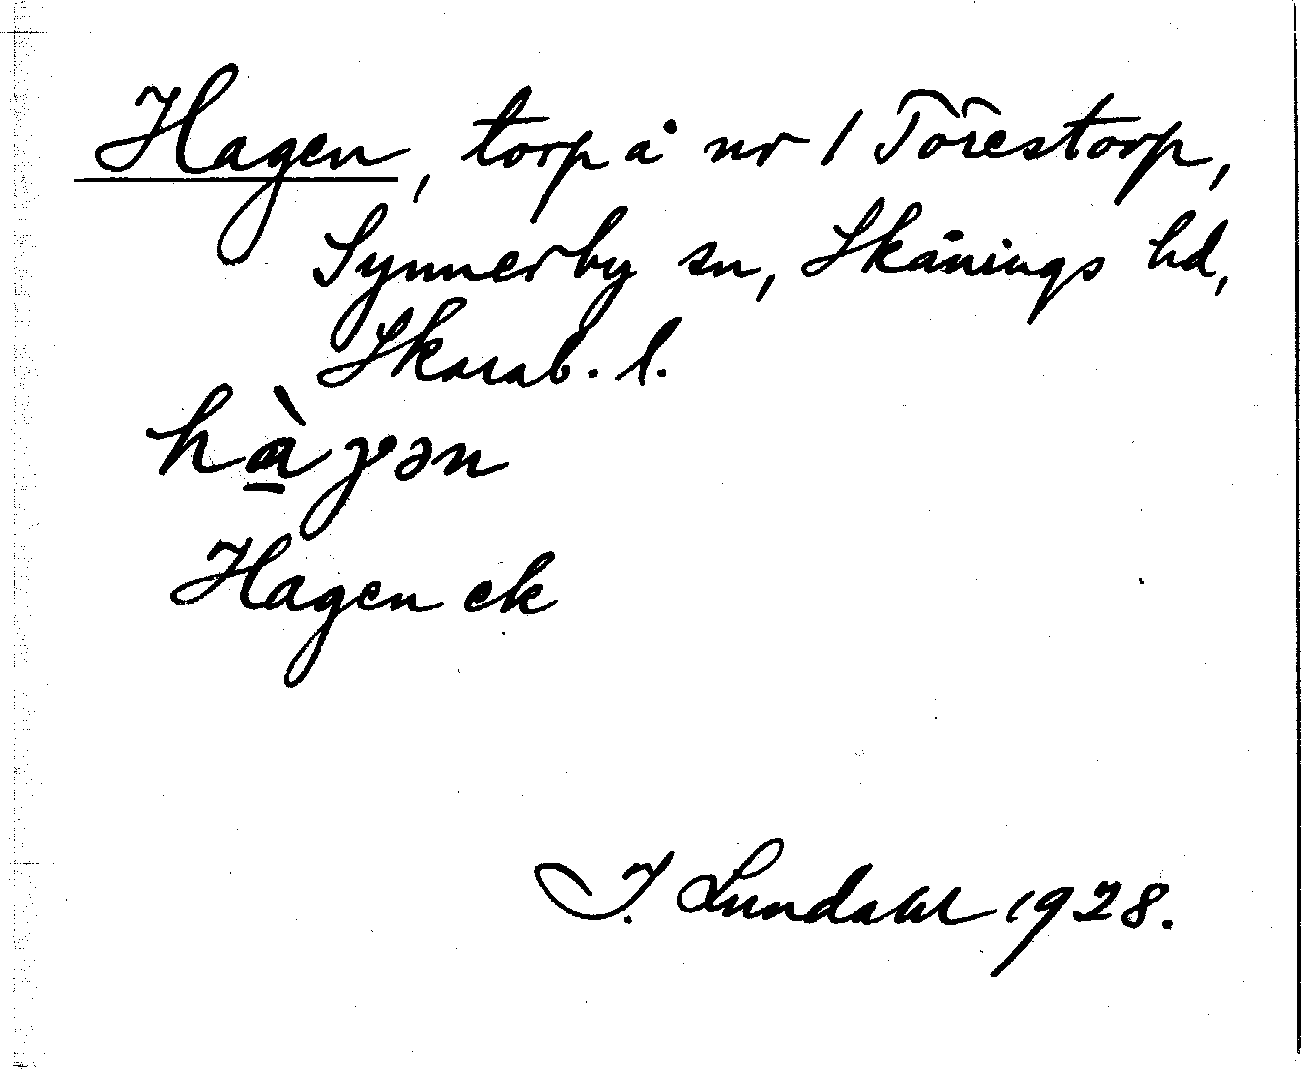 Hagen, torp å nr 1 Törestorp,
Synnerby sn, Skånings hd,
Skarab. l.
hàɣən
Hagen ek
I. Lundahl 1928.